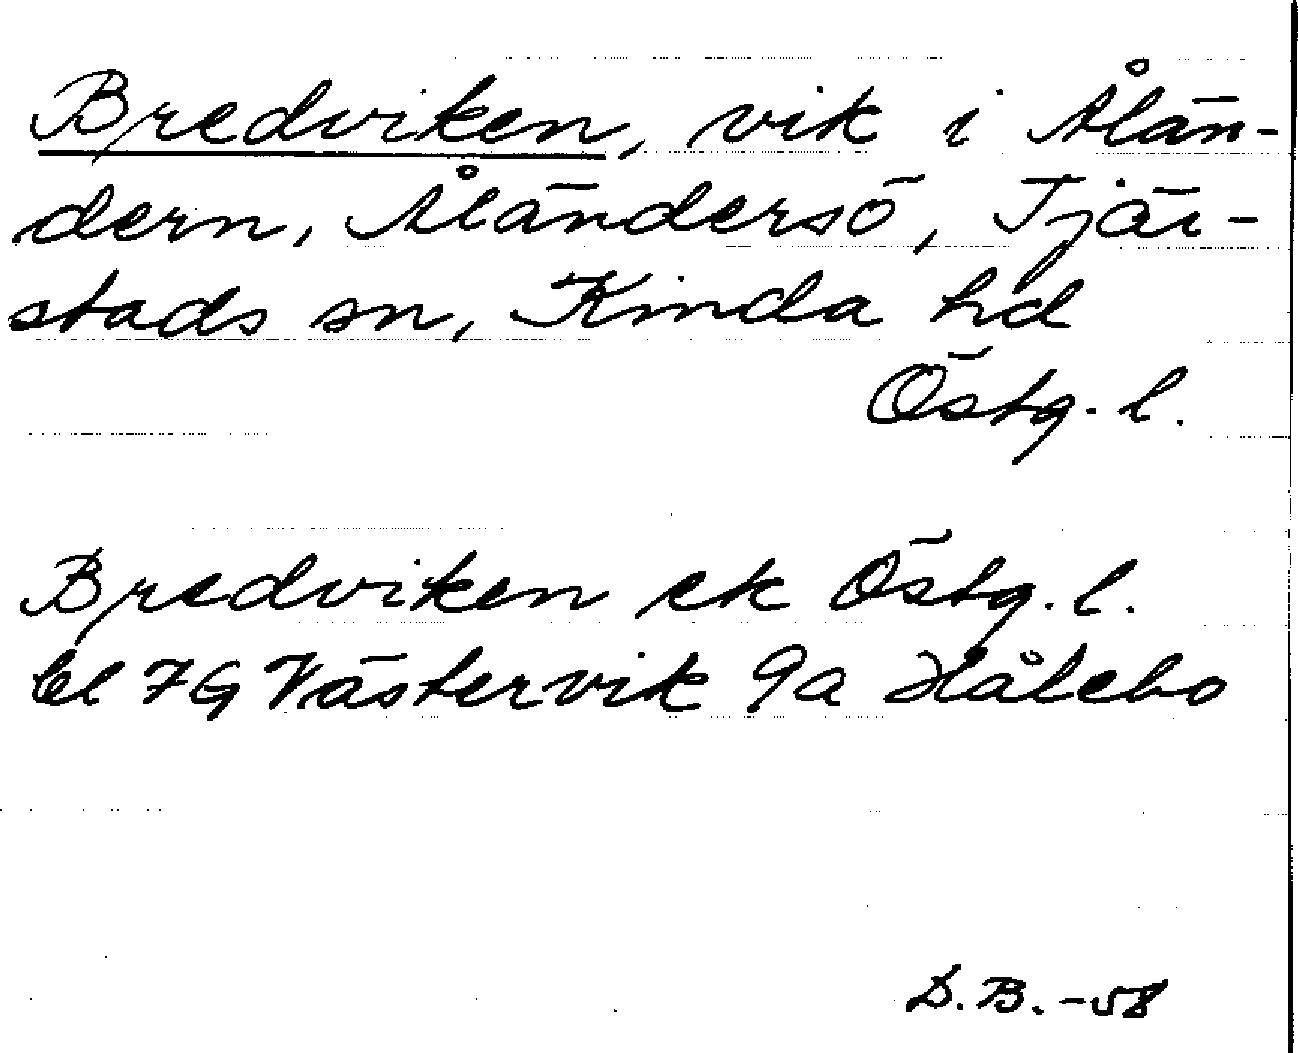 Bredviken, vik i Ålän-
dern, Åländersö, Tjär-
stads sn, Kinda hd
Östg. l.
Bredviken ek Östg. l.
bl 7G Västervik 9a Hålebo
D.B. -58